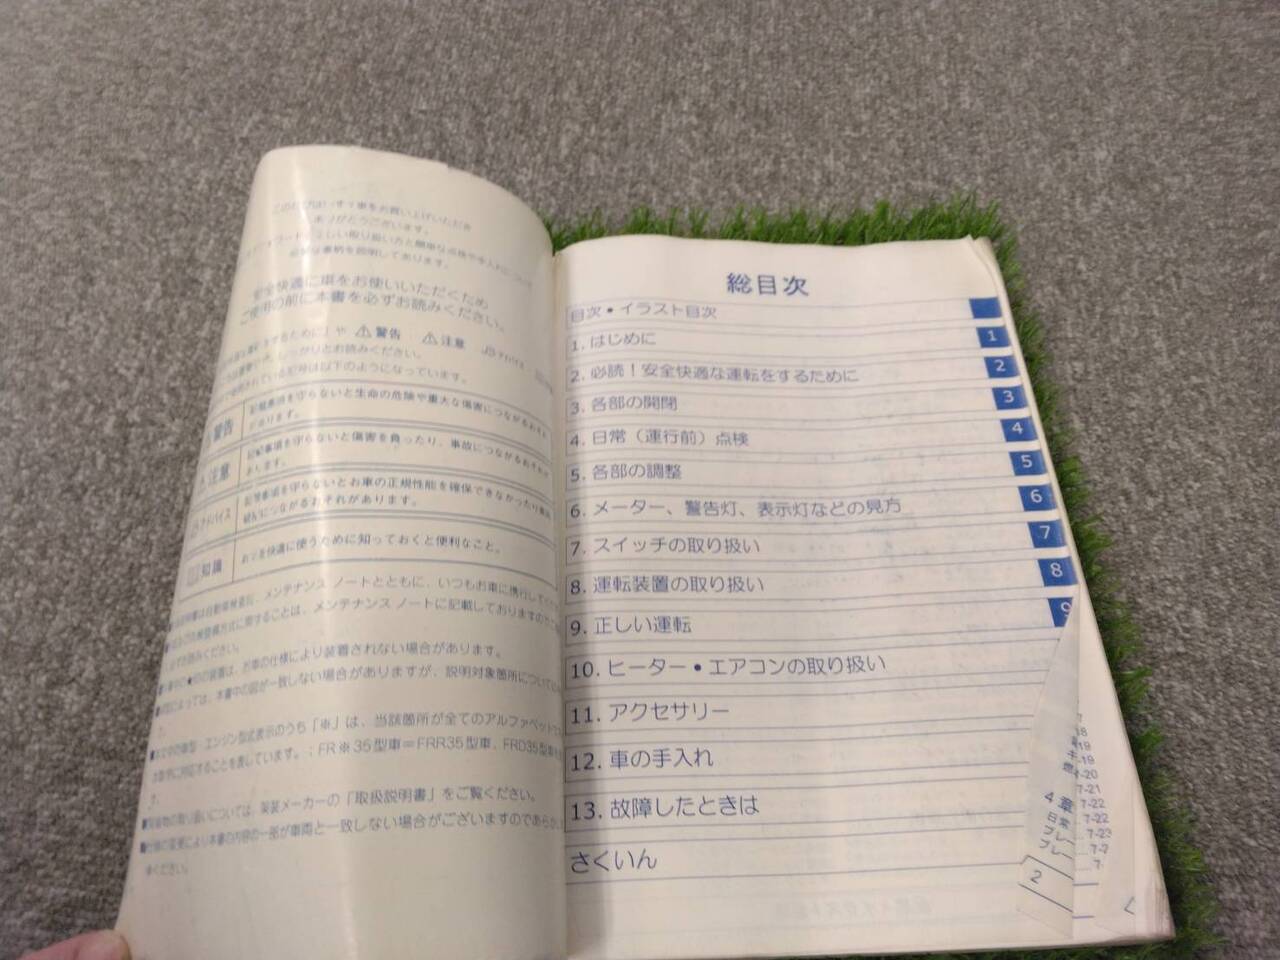 お買い上げいただき
ありがとうございます。
正しい取り扱い方と簡単な点検や手入れについて
説明してあります。
安全快適に車をお使いいただくため
ご使用の前に本書を必ずお読みください。
⚠警告 ⚠注意 アドバイス
お読みください。
使用されている記号は以下のようになっています。
警告 記載事項を守らないと生命の危険や重大な傷害につながるおそれ
があります。
注意 記載事項を守らないと傷害を負ったり、事故につながるおそれが
あります。
アドバイス 記載事項を守らないとお車の正規性能を確保できなかったり
につながるおそれがあります。
知識 お車を快適に使うために知っておくと便利なこと。
メンテナンス ノートとともに、いつもお車に携行して
に関することは、メンテナンス ノートに記載しておりますので
必ずお読みください。
の装置は、お車の仕様により装着されない場合があります。
によっては、本書中の図が一致しない場合がありますが、説明対象箇所について
■本文中の車型・エンジン型式表示のうち「※」は、当該箇所が全てのアルファベット
に対応することを表しています。:FR※35型車=FRR35型車、FRD35型車
の取り扱いについては、架装メーカーの「取扱説明書」をご覧ください。
■仕様の変更により本書の内容の一部が車両と一致しない場合がございますので
ください。
総目次
目次・イラスト目次
1. はじめに 1
2. 必読!安全快適な運転をするために 2
3. 各部の開閉 3
4. 日常(運行前)点検 4
5. 各部の調整 5
6. メーター、警告灯、表示灯などの見方 6
7. スイッチの取り扱い 7
8. 運転装置の取り扱い 8
9. 正しい運転 9
10. ヒーター・エアコンの取り扱い
11. アクセサリー
12. 車の手入れ
13. 故障したときは
さくいん
4 章
日常
ブレー
ブレー
2
7-21
7-22
7-22
7-23